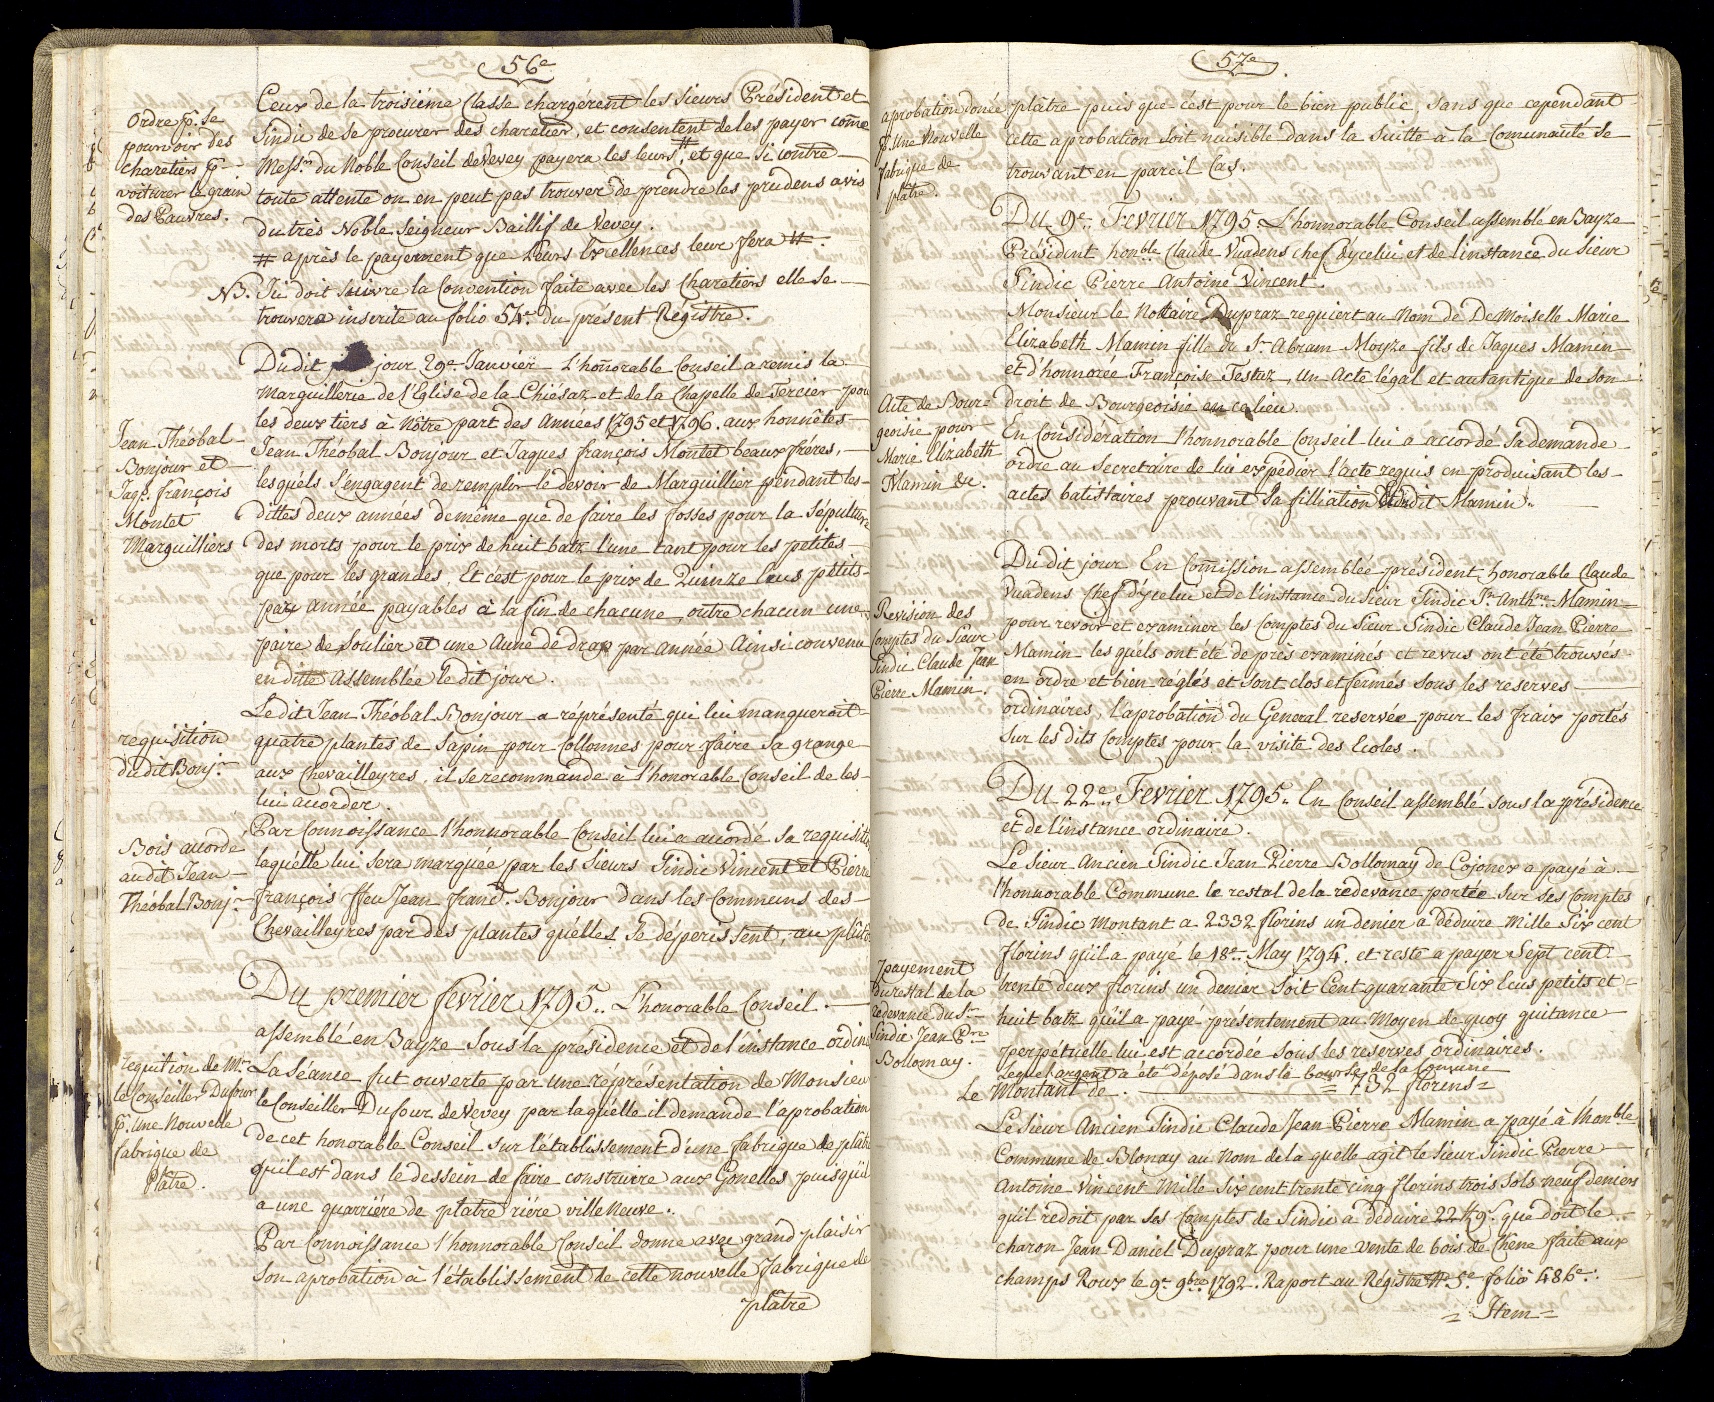 56e
Ordre p. se
pourvoir des
charetiers p.
voiturer le grain
des Pauvres.
Ceux de la troisiéme Classe chargérent les sieurs Président et
Sindic de se procurer des charetier, et consentent de les payer come
Messrs. du Noble Conseil de Vevey payera les leurs #, et que si contre
toute attente on en peut pas trouver de prendre les prudens avis
du très Noble Seigneur Baillif de Vevey.
# après le payement que Leurs Excellences leur fera #.
NB. Ici doit suivre la Convention faite avec les Charetiers elle se
trouvera inscrite au folio 54e. du présent Régistre.
Jean Théobal
Bonjour et
Jaqs. françois
Montet
Marguilliers
Du dit jour 29e. Janvier L'honorable Conseil a remis la
Marguillerie de l'Eglise de la Chiésaz et de la Chapelle de Tercier pou
les deux tiers à Nôtre part des Années 1795 et 1796. aux honnêtes
Jean Théobal Bonjour et Jaques françois Montet beaux fréres,
lesquéls s'engagent de remplir le devoir de Marguillier pendant les
dittes deux années de même que de faire les fosses pour la sépulture
des morts pour le prix de huit batz l'une tant pour les petites
que pour les grandes. Et c'est pour le prix de Quinze Ecus petits
par année payables à la fin de chacune, outre chacun une
paire de soulier et une Aune de drap par Année Ainsi convenu
en ditte Assemblée le dit jour.
requisition
du dit Bonjr.
Le dit Jean Théobal Bonjour a réprésenté qui lui manqueroit
quatre plantes de sapin pour Collonnes pour faire sa grange
aux Chevailleyres, il se recommande à l'honorable Conseil de les
lui accorder.
Bois accordé
au dit Jean
Théobal Bonjr.
Par Connoissance l'honnorable Conseil lui a accordé sa requisition
laquélle lui sera marquée par les Sieurs Sindic Vincent et Pierre
françois ffeu Jean franç. Bonjour dans les Communs des
Chevailleyres par des plantes quélles Se dépérissent, au plûto
Du premier février 1795. L'honorable Conseil
assemblé en Bayze sous la présidence et de l'instance ordine
requition de Mr.
le Conseiller Dufour
p. une Nouvelle
fabrique de
Plâtre.
La Séance fut ouverte par une représentation de Monsieur
le Conseiller Dufour de Vevey par laquélle il demande l'aprobation
de cet honorable Conseil sur l'établissement d'une fabrique de plâtre
qu'il est dans le dessein de faire construire aux Gonelles puisqu'il
a une quarriére de platre riére ville Neuve.
Par Connoissance l'honnorable Conseil donne avec grand plaisir
son aprobation à l'établissement de cette nouvelle fabrique de
plâtre
57e
aprobation donée
p. Une Nouvelle
fabrique de
plâtre.
plâtre puis que c'est pour le bien public, sans que cependant
cette aprobation soit nuisible dans la suitte à la Comunauté se
trouvant en pareil Cas.
Du 9e. Fevrier 1795. L'honnorable Conseil assemblé en Bayze
Président honble. Claude Vuadens chef d'ycelui et de l'instance du Sieur
Sindic Pierre Antoine Vincent.
Acte de Bour=
geoisie pour
Marie Elizabeth
Mamin &c.
Monsieur le Nottaire Dupraz requiert au Nom de DeMoiselle Marie
Elizabeth Mamin fille du Sr. Abram Moyze fils de Jaques Mamin
et d'honnorée Françoise Testuz, un Acte légal et autantique de son
droit de Bourgeoisie en ce lieu.
En Considération l'honnorable Conseil lui a accordé sa demande
ordre au Secretaire de lui expédier l'acte requis en produisant les
actes batistaires prouvant sa filliation dudit Mamin.
Revision des
Comptes du Sieur
Sindic Claude Jean
Pierre Mamin.
Du dit jour En Comission assemblée président honorable Claude
Vuadens Chef d'ycelui et de l'instance du Sieur Sindic Jn. Anthne. Mamin
pour revoir et examiner les Comptes du Sieur Sindic Claude Jean Pierre
Mamin les quels ont été de près examinés et revus ont été trouvés
en ordre et bien reglés et sont clos et fermés sous les reserves
ordinaires, l'aprobation du General reservée pour les fraix portés
sur les dits Comptes pour la visite des Ecoles.
Du 22e. Fevrier 1795. En Conseil assemblé sous la présidence
et de l'instance ordinaire.
payement
du restal de la
redevance du Sr.
Sindic Jean Pre.
Bollomay.
Le Sieur Ancien Sindic Jean Pierre Bollomay de Cojonex a payé à
l'honnorable Commune le restal de la redevance portée sur ses Comptes
de Sindic Montant a 2332 florins un denier a déduire Mille Six cent
florins qu'il a payé le 18e. May 1794. et reste a payer Sept cent
trente deux florins un denier soit Cent quarante Six Ecus petits et
huit batz qu'il a payé présentement au Moyen de quoy quitance
perpétuelle lui est accordée sous les reserves ordinaires.
Lequel argent a été déposé dans la bourse de la Comune
Le Montant de = 732 florins =
Le Sieur Ancien Sindic Claude Jean Pierre Mamin a payé à l'honble
Commune de Blonay au Nom de la quelle agit le Sieur Sindic Pierre
Antoine Vincent Mille Six cent trente cinq florins trois sols neuf deniers
qu'il redoit par ses Comptes de Sindic a déduire 22 ff 9s. que doit le
charon Jean Daniel Dupraz pour une vente de bois de Chêne faite aux
champs Roux le 9e. 9bre 1792. Raport au Régistre N. 5e. folio 486e.
= Item =